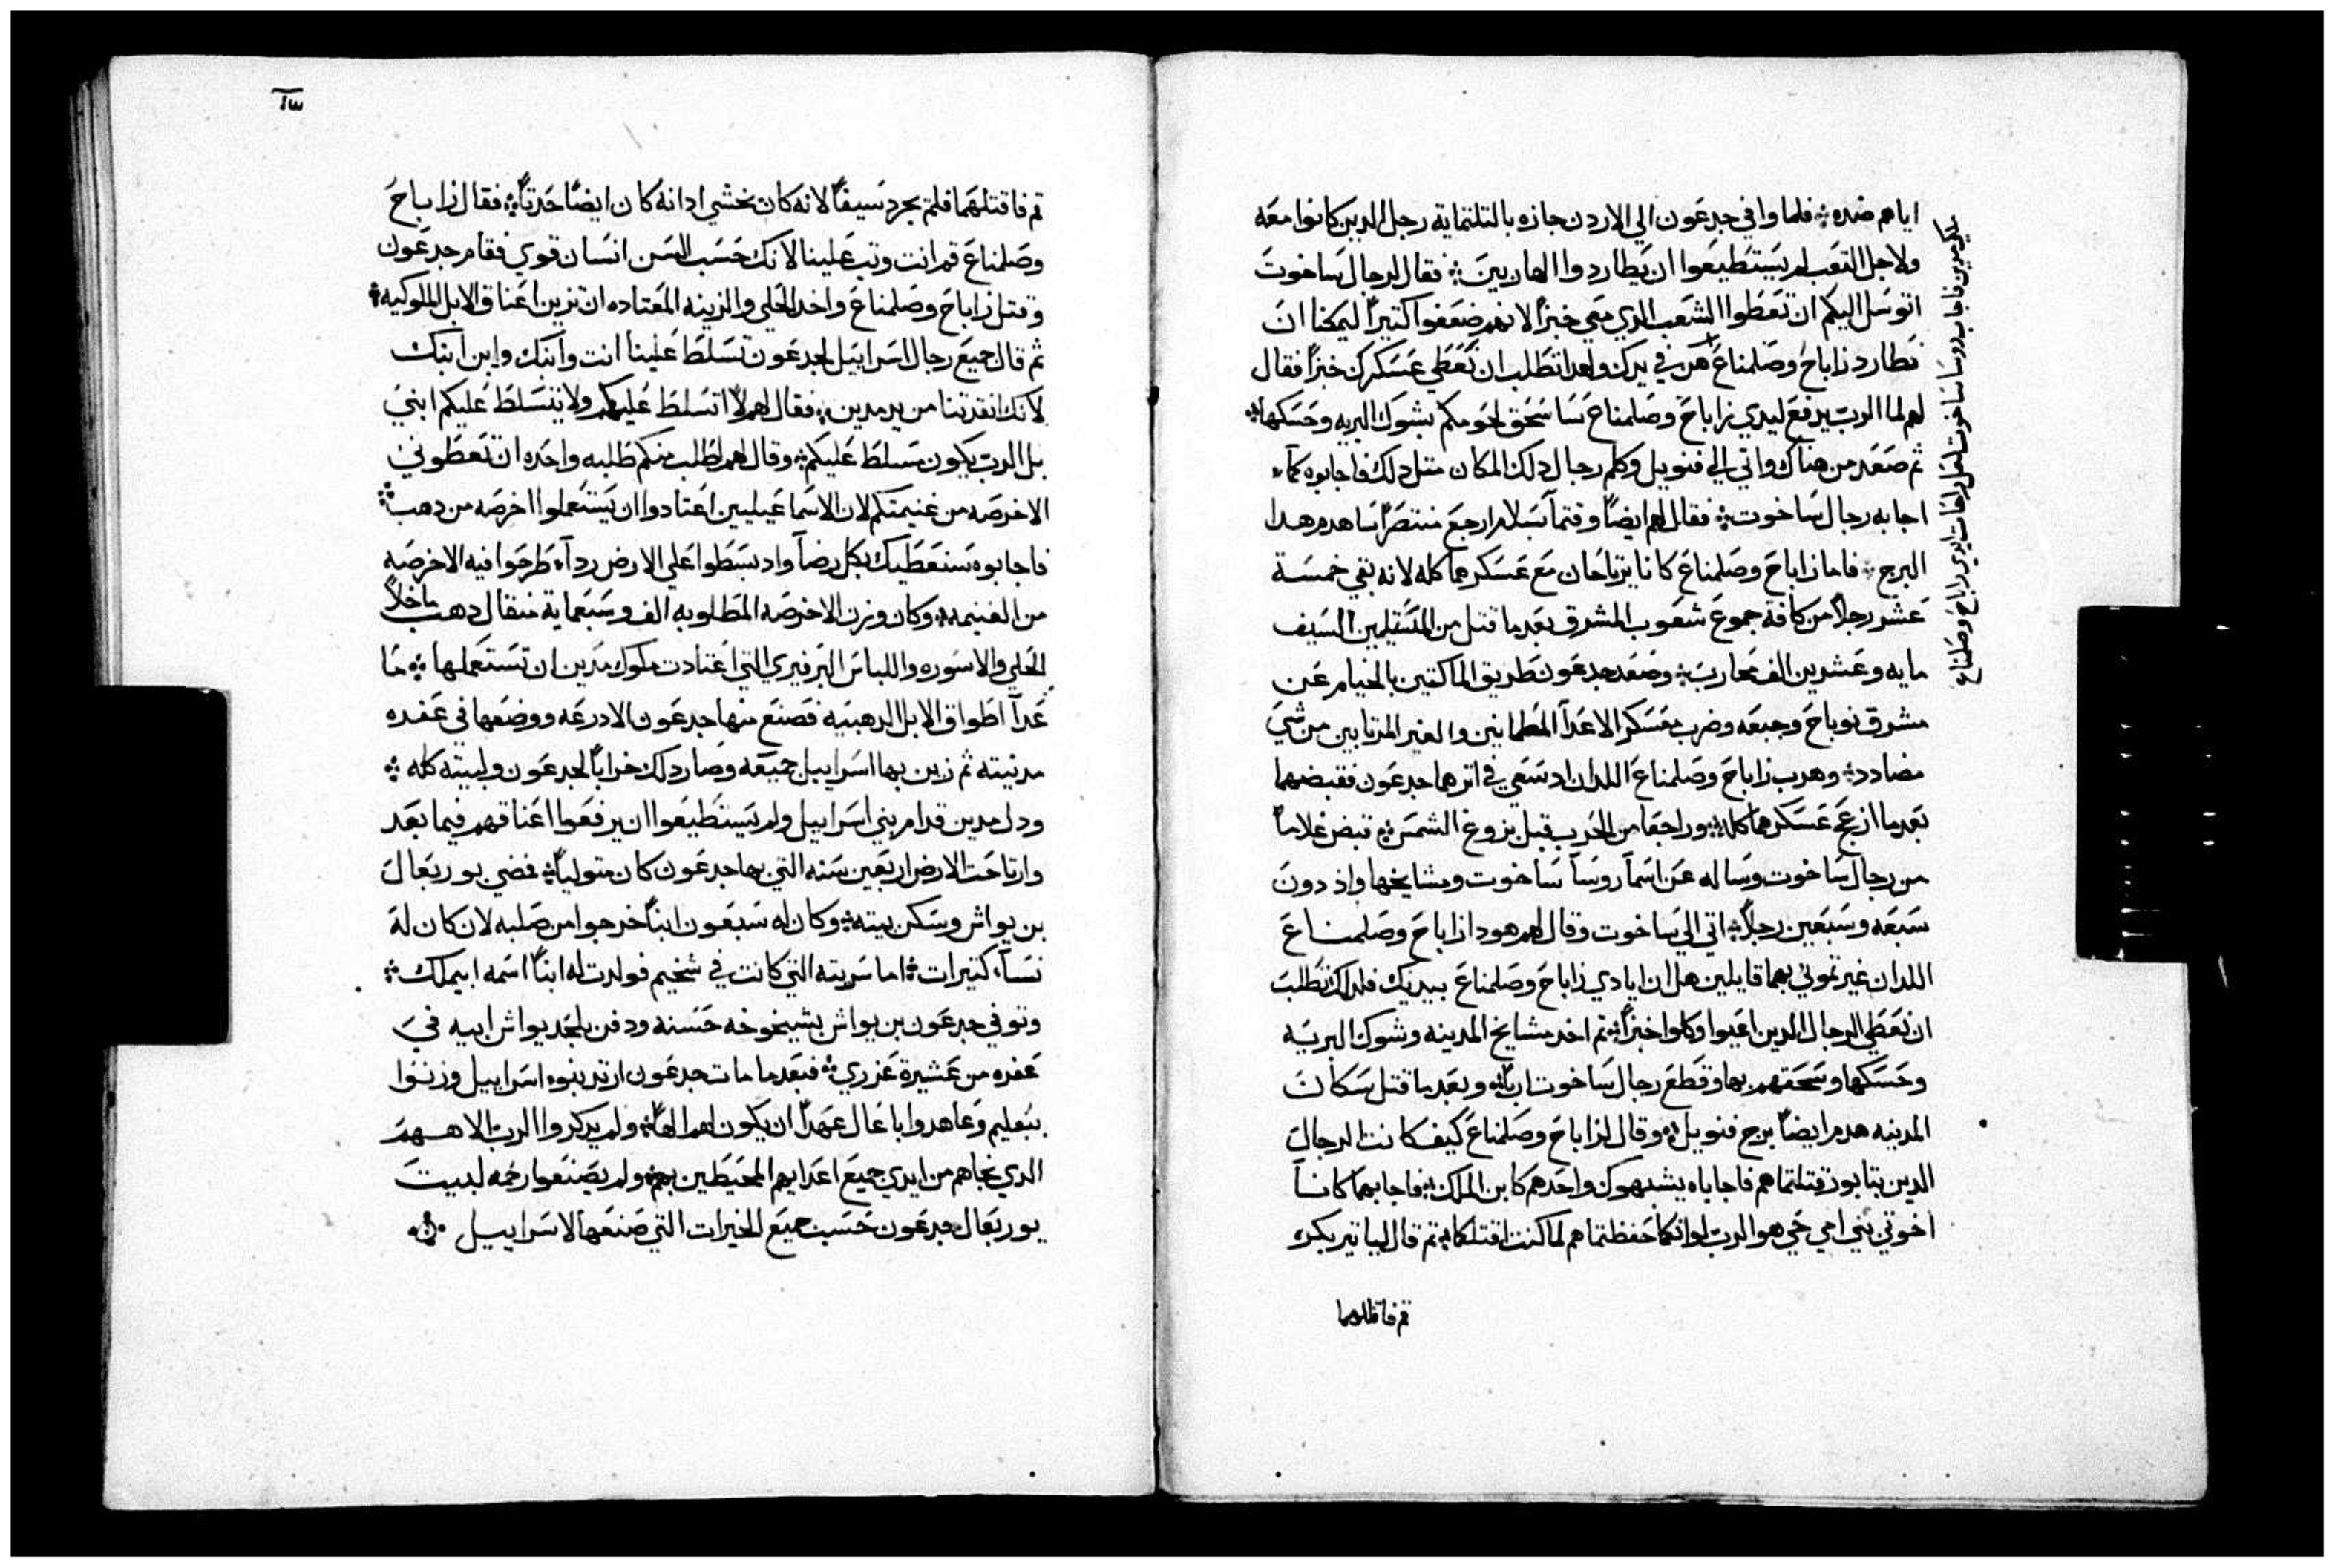 اياهم ضده فلما وافي جدعون الي الاردن جازه بالتلتماية رجل الدين كانوا معه
ولاجل التعب لم يستطيعوا ان يطاردوا الهاربين فقال لرجال ساخوت
اتوسل اليكم ان تعطوا الشعب الدي معي خبزاً لانهم ضعفوا كتيراً ليمكنا ان
نطارد زاباح وصلمناع هن في يدك ولهدا تطلب ان نعطي عسكرك خبزاً فقال
لهم لما الرب يدفع ليدي زاباح وصلمناع سا سحق لحومكم بشوك البريه وحسكها
ثم صعد من هناك واتي الي فنويل وكلم رجال دلك المكان متل دلك فاجابوه كمآ
اجابه رجال ساخوت فقال لهم ايضاً وقتمآ بسلام ارجع منتصراً ساهدم هدا
البرج فاما زاباح وصلمناع كانا يرتاحان مع عسكرهما كله لانه بقي خمسة
عشر رجلاً من كافة جموع شعوب المشرق بعد ما قتل من المتقلمين السيف
مايه وعشرين الف محارب وصعد جدعون طريق الماكتين بالخيام عن
مشرق نوباح وجبعه وضرب معسكر الاعدآ المطمانين والغير المرتابين من شي
مضادد وهرب زاباح وصلمناع اللدان اد سعي في اترهما جدعون فقبضهما
بعد ما ازعج عسكرهما كله وراجعا من الحرب قبل بزوغ الشمس قبض غلاماً
من رجال ساخوت وساله عن اسمآ روسآ ساخوت ومشايخها واذ دون
سبعه وسبعين رجلاً اتي الي ساخوت وقال لهم هودا زاباح وصلمناع
اللدان غيرتموني بهما قايلين هل ان ايادي زاباح وصلمناع بيديك فلدلك تطلب
ان نعطي الرجال الدين اعيوا وكلوا خبزاً تم اخد مشايخ المدينه وشوك البريه
وحسكها وسحقهم بها وقطع رجال ساخوت ارباً وبعد ما قتل سكان
المدينه هدم ايضاً برج فنويل وقال لزاباح وصلمناع كيف كانت الرجال
الدين بتابور قتلتماهم فاجاباه يشبهوك واحدهم كابن الملك فاجابهما كانـا
اخوتي بني امي حي هو الرب لو انكما حفظتماهم لما كنت اقتلكما تم قال لياتير بكره
قم فاقتلهما
قم فاقتلهما فلم يجرد سيفاً لانه كان يخشي اد انه كان ايضاً حدتاً فقال زاباح
وصلمناع قم انت وتب علينا لانك حسب السن انسان قوي فقام جدعون
وقتل زاباح وصلمناع واخد الحلي والزينه المعتاده ان تزين اعناق الابل الملوكيه
ثم قال جميع رجال اسراييل لجدعون تسلط علينا انت وابنك وابن ابنك
لانك انقدتنا من يد مدين فقال لهم لا اتسلط عليكم ولا يتسلط عليكم ابني
بل الرب يكون متسلط عليكم وقال لهم اطلب منكم طلبه واحده ان تعطوني
الاخرصه من غنيمتكم لان الاسماعيليين اعتادوا ان يستعملوا اخرصه من دهب
فاجابوه سنعطيك بكل رضآ واد بسطوا علي الارض ردآ طرحوا فيه الاخرصه
من الغنيمه وكان وزن الاخرصه المطلوبه الف وسبعماية متقال دهب ماخلا
الحلي والاسوره واللباس البرفيري التي اعتادت ملوك مدين ان تستعملها مَا
عدآ اطواق الابل الدهبيه فصنع منها جدعون الادرعه ووضعها في عفره
مدنيته ثم زين بها اسراييل جميعه وصار دلك خراباً لجدعون ولبيته كله
ودل مدين قدام بني اسراييل ولم يستطيعوا ان يرفعوا اعناقهم فيما بعد
وارتاحت الارض اربعين سنه التي بها جدعون كان متولياً فمضي يوربعال
بن يواش وسكن بيته وكان له سبعون ابناً خرجوا من صلبه لان كان له
نسآ كتيرات اما سريته التي كانت في شخيم فولدت له ابناً اسمه ابيملك
وتوفي جدعون بن يواش بشيخوخه حسنه ودفن بلحد يواش ابيه في
عفره من عشيرة عزري فبعد ما مات جدعون ارتد بنوا اسراييل وزنوا
ببعليم وعاهدوا باعال عهداً ان يكون لهم الهاً ولم يدكروا الرب الاههم
الدي نجاهم من ايدي جميع اعدايهم المحيطين بهم ولم يصنعوا رحمه لبيت
يوربعال جدعون حسب جميع الخيرات التي صنعها لاسراييل